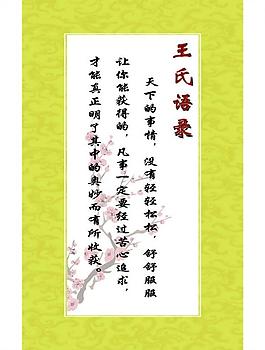 王氏语录
天下的事情，没有轻轻松松，舒舒服服
让你能获得的，凡事一定要经过苦心追求，
才能真正明了其中的奥妙而有所收获。